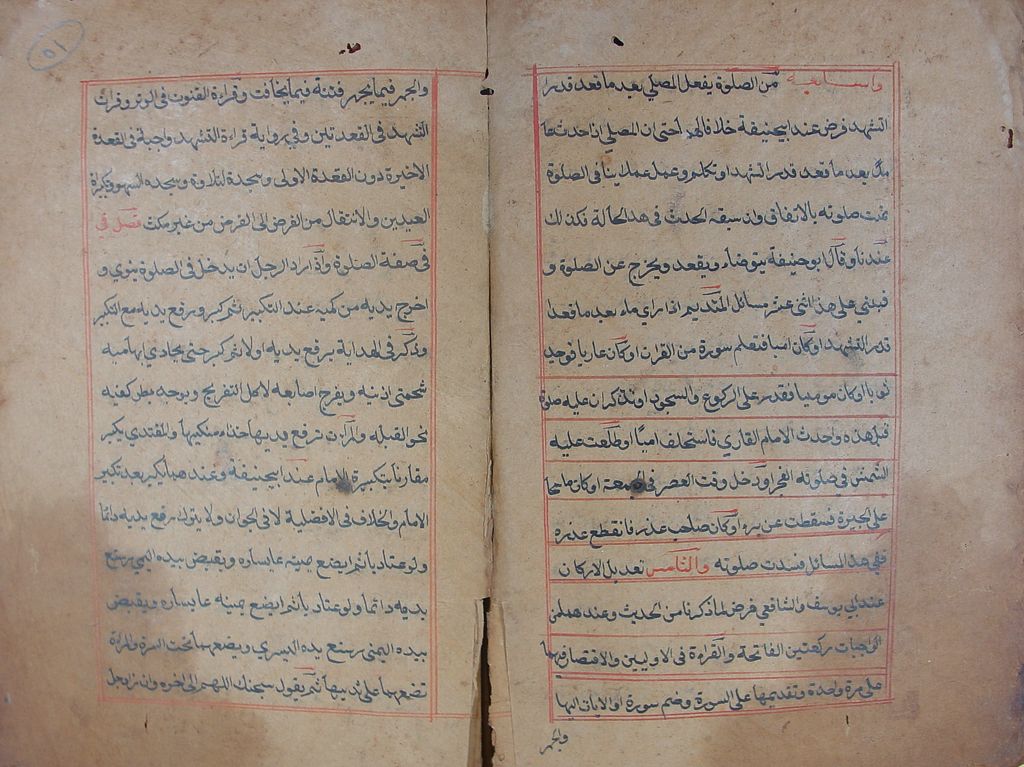 والسابعة من الصلوة يفعل المصلي بعد ما قعد قدر
التشهد فرض عند ابيحنيفة خلافا لهما حتى ان المصلي ان احدث عا
مدا بعد ما قعد قدر التشهد او تكلم وعمل عملا ينافي الصلوة
تمت صلوته بالاتفاق وان سبقه الحدث في هذ الحالة فكذلك
عندنا وقال بوحنيفة يتوضاء ويقعد ويخرج عن الصلوة و
فبتني على هذ اثنى عشر مسائل المتديم اذا راي ماء بعد ما قعدا
قدر التشهد او كان اميا فتعلم سورة من القران او كان عاريا فوجد
ثوبا او كان موميا فقدر على الركوع والسجود او تذكر ان عليه صلوة
قبل هذه واحدث الامام القاري فاستخلف اميا او طلعت عليه
الشمس في صلوته الفجر او دخل وقت العصر في الجمعة او كان ماسحا
على الجبيرة فسقطت عن برء او كان صاحب عذر فانقطع عذره
ففي هذ المسائل فسدت صلوته والثامن تعديل الاركان
عند ابي يوسف والشافعي فرض لما ذكرنا من الحديث وعندهما من
الواجبات ركعتين الفاتحة والقراءة في الاوليين والاقتصار فيهما
على مرة واحدة وتقديمها على السورة وضم سورة او الايات اليها
والجهر
٥١
والجهر فيما يجهر فتنة فيما يخافت وقراءة القنوت في الوتر وقراءت
التشهد في القعدتين وفي رواية قراءة التشهد واجبة في القعدة
الاخيرة دون القعدة الاولى وسجدة التلاوة وسجده السهو وتكبيرة
العيدين والانتقال من الفرض الى الفرض من غير مكث فصل في
في صفة الصلوة واذا اراد الرجل ان يدخل في الصلوة ينوي و
اخرج يديه من كميه عند التكبير ثم كبر ورفع يديه مع التكبير
وذكر في الهداية يرفع يديه اولا ثم كبر حتى يحاذي ابهاميه
شحمتي اذنيه ويفرج اصابعه لا كل التفريج ويوجه بطن كفيه
نحو القبلة والمراءت ترفع يديها حذاء منكبيها والمقتدي يكبر
مقارنا بتكبيرة الامام عند ابيحنيفة وعندهما يكبر بعد تكبير
الامام والخلاف في الافضلية لا في الجوان ولا يتوك رفع يديه دائما
ولو عتاد ياثم ايضع يمينه على يساره ويقبض بيده اليمنى رسغ
يديه دائما ولو عتاد ياثم ايضع يمينه على يساره ويقبض
بيده اليمنى رسغ يده اليسرى ويضعهما تحت السرة والمراة
تضعهما على ثدييها ثم يقول سبحنك اللهم الى اخره وان زاد جل